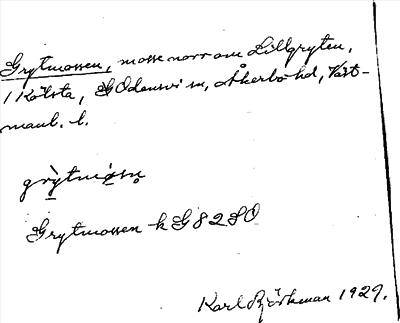 Grytmossen, mosse norr om Lillgryten,
i Kölsta, Odensvi sn, Åkerbo hd, Väst-
manl. l.
grỳtmòsn̥
Grytmossen k G 82 SO
Karl Björkman 1929.